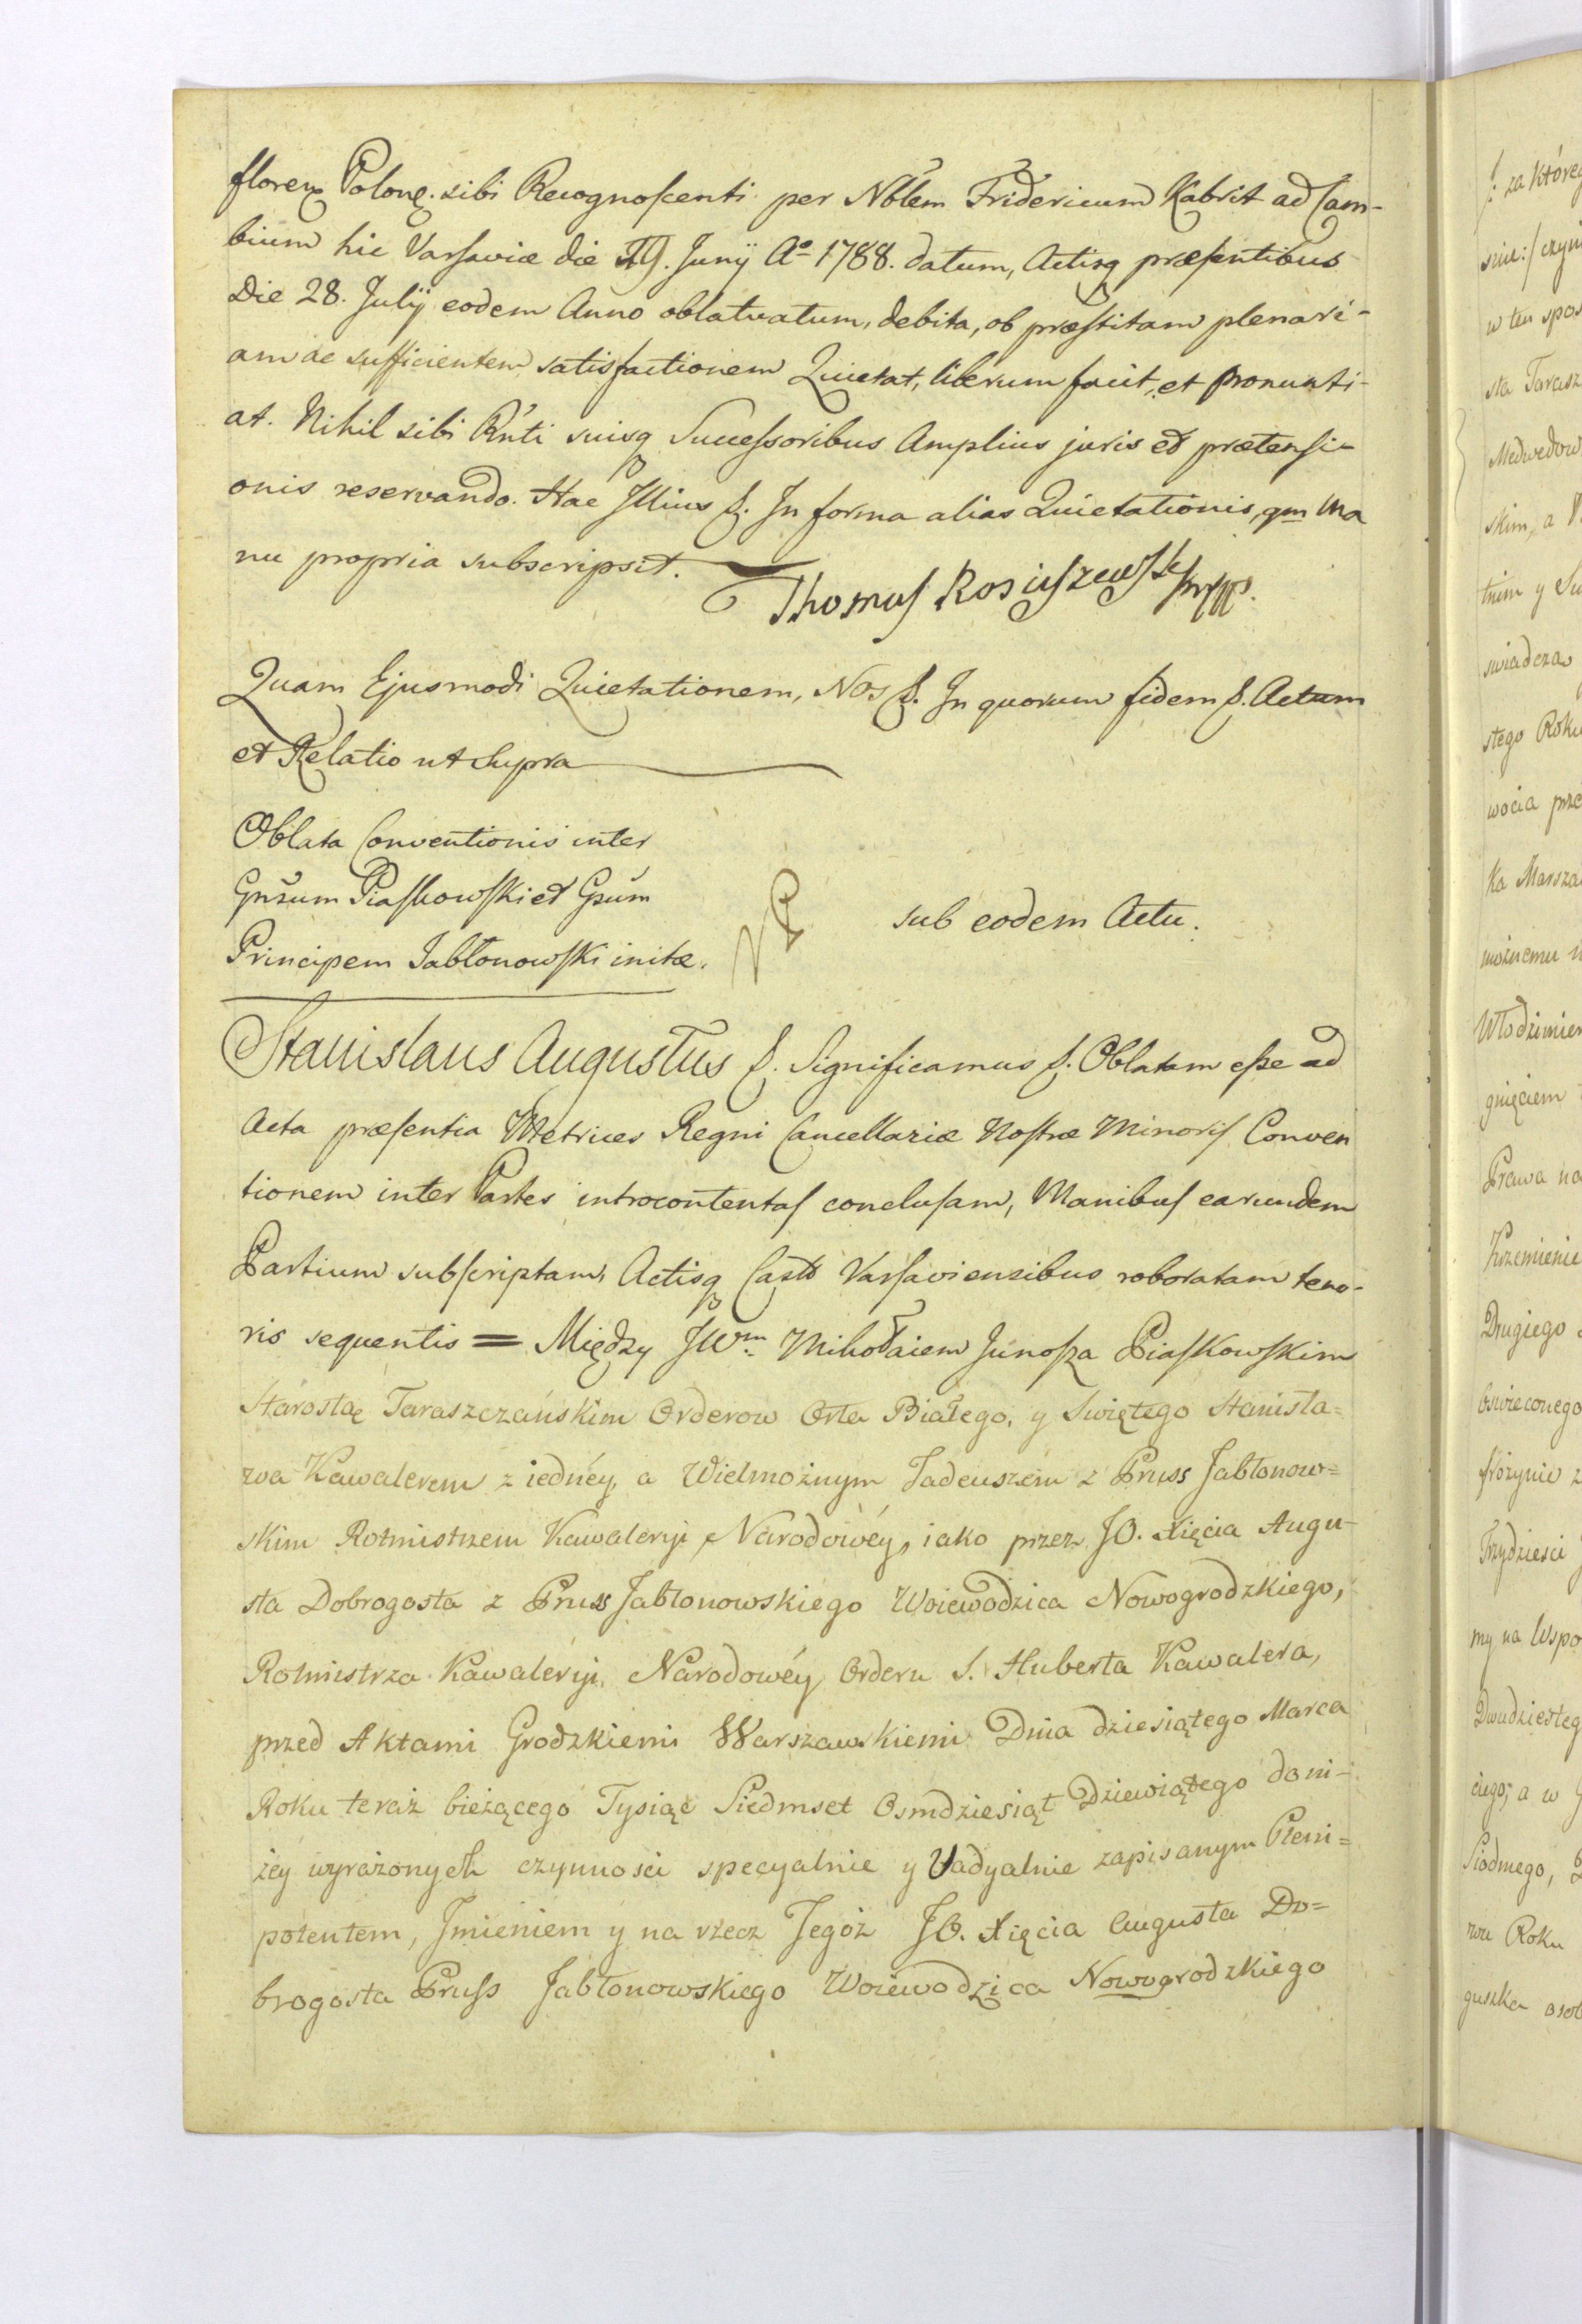 floren Polon. sibi Recognoscenti per Nblem Fridericum Kabrit ad Cam-
bium hic Varsaviæ die 19. Junÿ Ao 1788. datum, Actisq præsentibus
Die 28. Julÿ eodem Anno oblatuatum, debita, ob præstitam plenari-
am ac sufficientem satisfactionem Quietat, liberum facit, et pronunti-
at. Nihil sibi Rnti suisq Successoribus Amplius juris et prætensi-
onis reservando. Hac Illius &. In forma alias Quietationis, qm Ma
nu propria subscripsit. Thomas Rosciszewski mpp.
Quam Ejusmodi Quietationem, Nos &. In quorum fidem &. Actum
et Relatio ut supra
Oblata Conventionis inter
Gnsum Piaskowski et Gsum
Principem Jabłonowski initæ.
sub eodem Actu.
Stanislaus Augustus &. Significamus &. Oblatam esse ad
Acta præsentia Metrices Regni Cancellariæ Nostræ Minoris Conven
tionem inter Partes introcontentas conclusam, Manibus earundem
Partium subscriptam, Actisq Castr Varsaviensibus roboratam teno-
ris sequentis = Między JWm Mikołaiem Junosza Piaskowskim
Starostą Taraszczańskim Orderow Orła Białego, y Swiętego Stanisła=
wa Kawalerem z iednéy, a Wielmożnym Tadeuszem z Pruss Jabłonow=
skim Rotmistrzem Kawaleryi Narodowéy, iako przez JO. Xięcia Augu-
sta Dobrogosta z Pruss Jabłonowskiego Woiewodzica Nowogrodzkiego,
Rotmistrza Kawaleryi Narodowéy Orderu S. Huberta Kawalera,
przed Aktami Grodzkiemi Warszawskiemi Dnia dziesiątego Marca
Roku teraz bieżącego Tysiąc Siedmset Osmdziesiąt Dziewiątego do ni-
żey wyrażonych czynnosci specyalnie y Vadyalnie zapisanym Pleni=
potentem, Jmieniem y na rzecz Tegoż JO. Xięcia Augusta Do=
brogosta Pruss Jabłonowskiego Woiewodzica Nowogrodzkiego